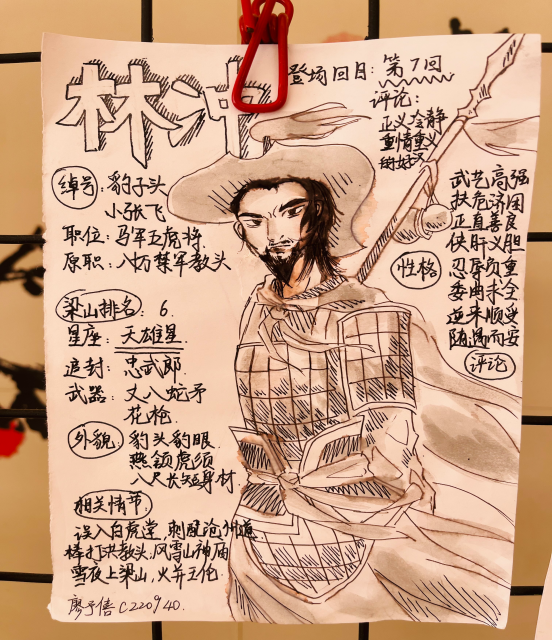 林冲
登场回目：第7回
评论：
正义冷静
重情重义
的好汉
绰号：豹子头
小张飞
职位：马军五虎将
原职：八十万禁军教头
梁山排名：6
星座：天雄星
追封：忠武郎
武器：丈八蛇矛
花枪
外貌：豹头豹眼
燕颔虎须
八尺长短身材
相关情节
误入白虎堂，刺配沧州道
棒打洪教头，风雪山神庙
雪夜上梁山，火并王伦
廖予僖 C220940.
武艺高强
扶危济困
正直善良
侠肝义胆
性格
忍辱负重
委曲求全
逆来顺受
随遇而安
评论